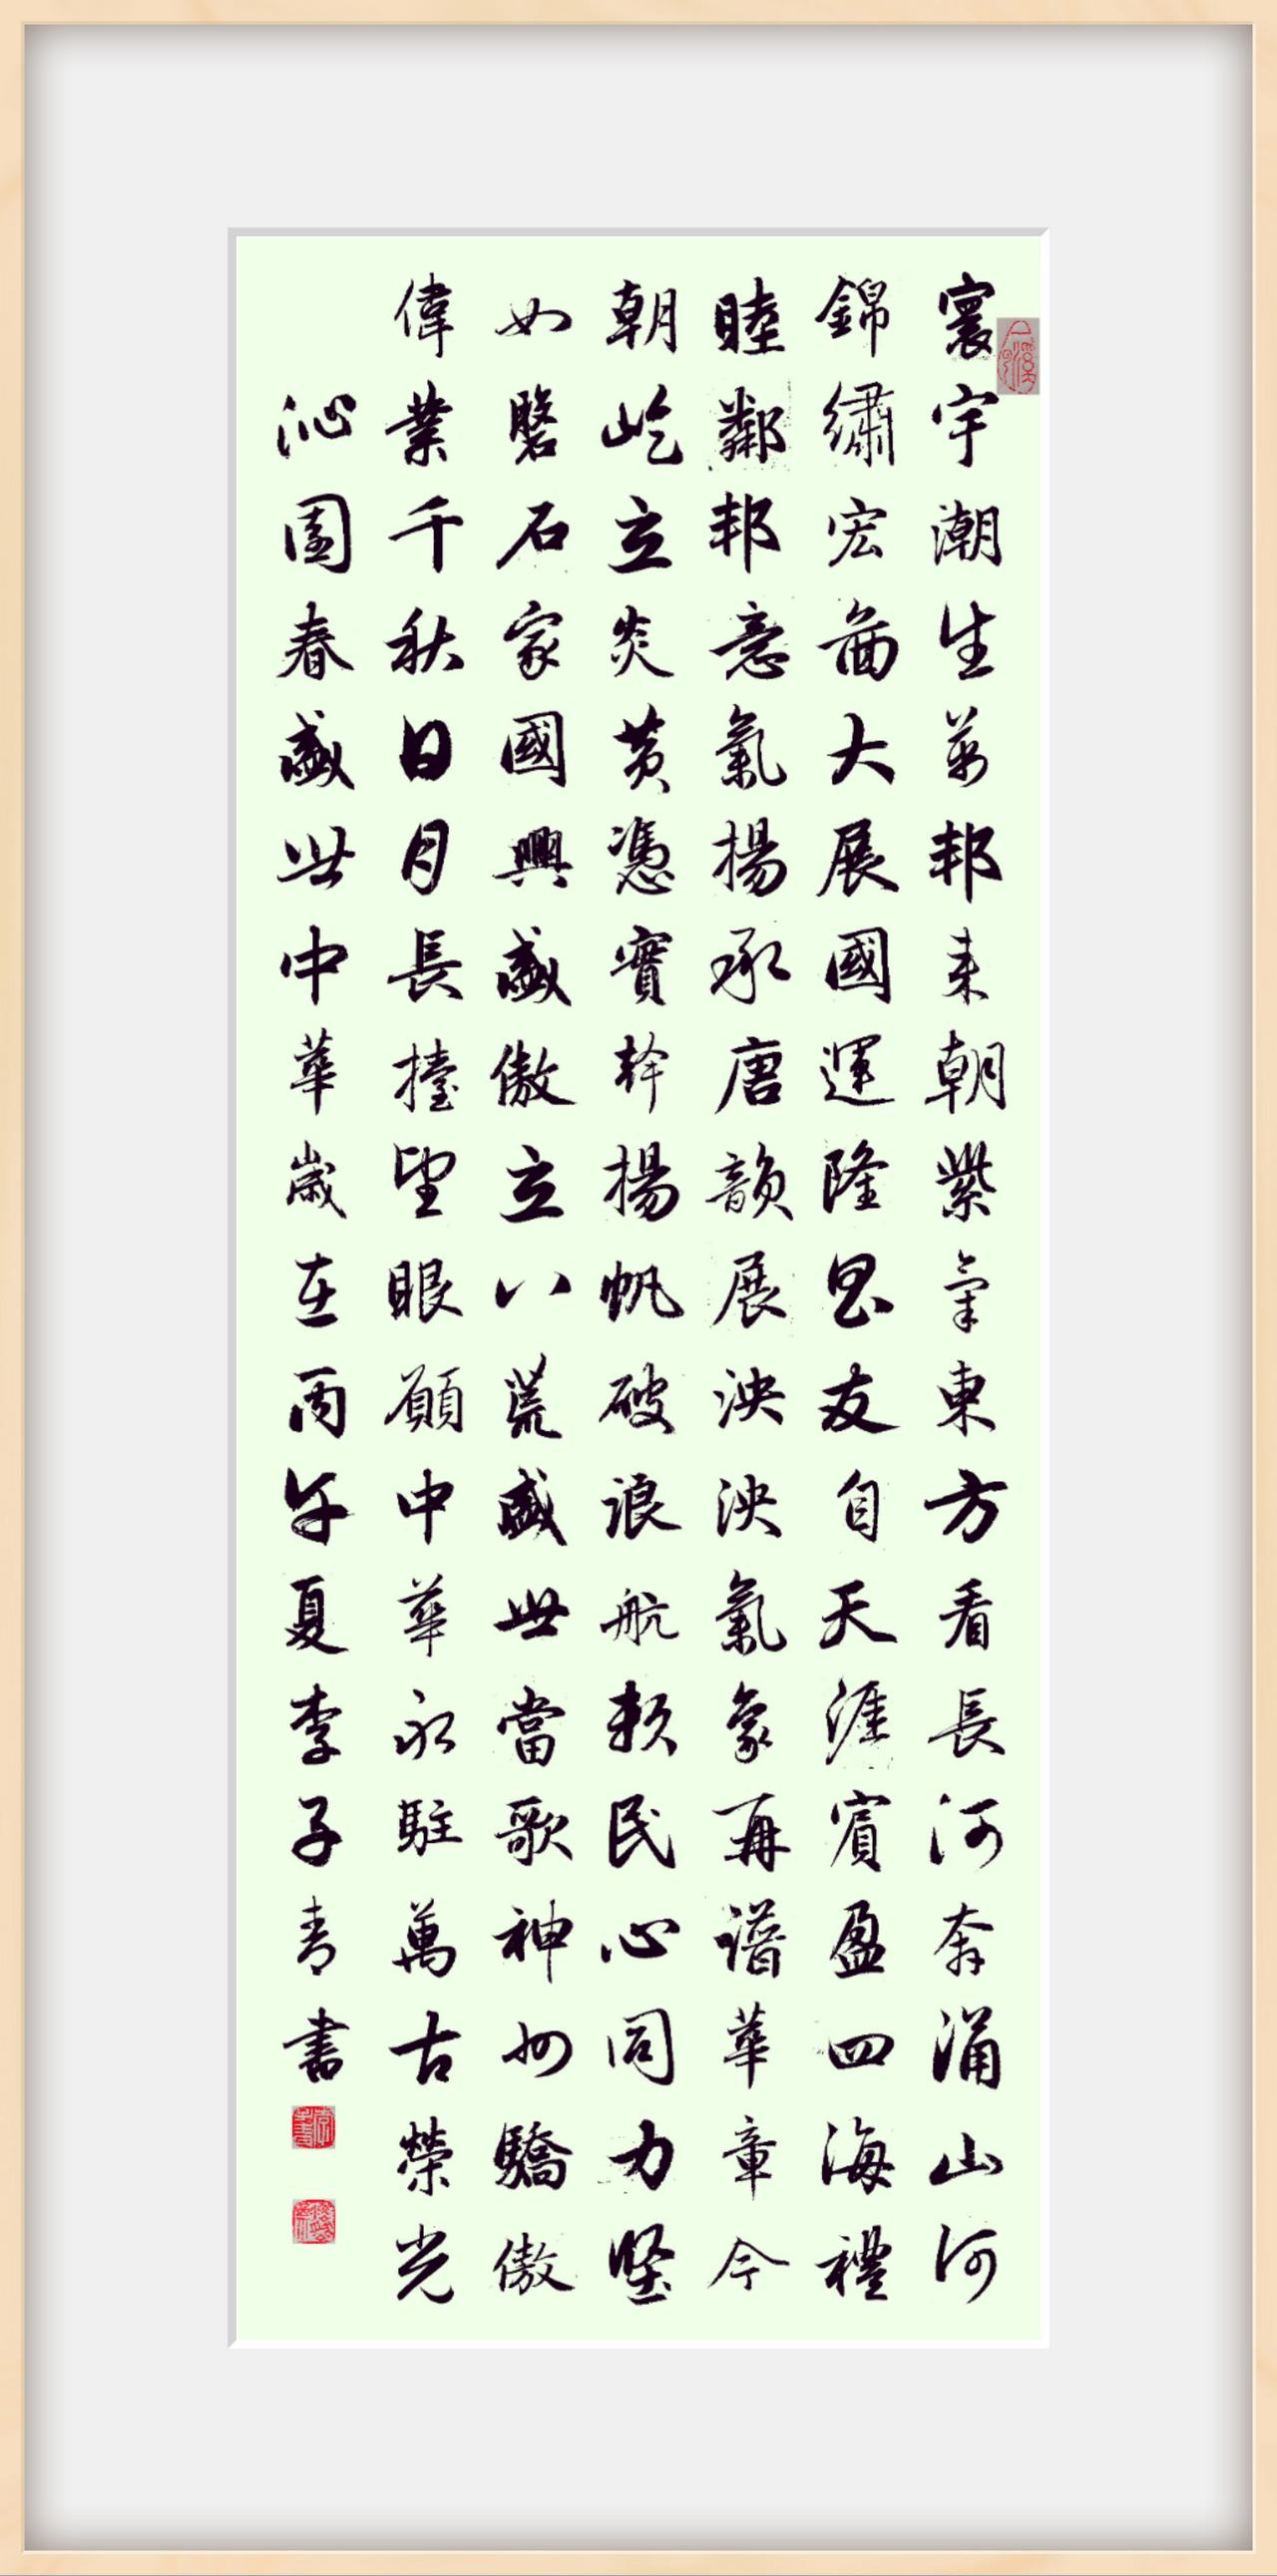 寰宇潮生萬邦来朝紫氣東方看長河奔涌山河
錦繡宏圖大展國運隆昌友自天涯賓盈四海禮
睦鄰邦意氣揚承唐韻展泱泱氣象再譜華章今
朝屹立炎黃憑實幹揚帆破浪航賴民心同力堅
如磐石家國興盛傲立八荒盛世當歌神州驕傲
偉業千秋日月長擡望眼願中華永駐萬古榮光
沁園春盛世中華歲在丙午夏李子青書